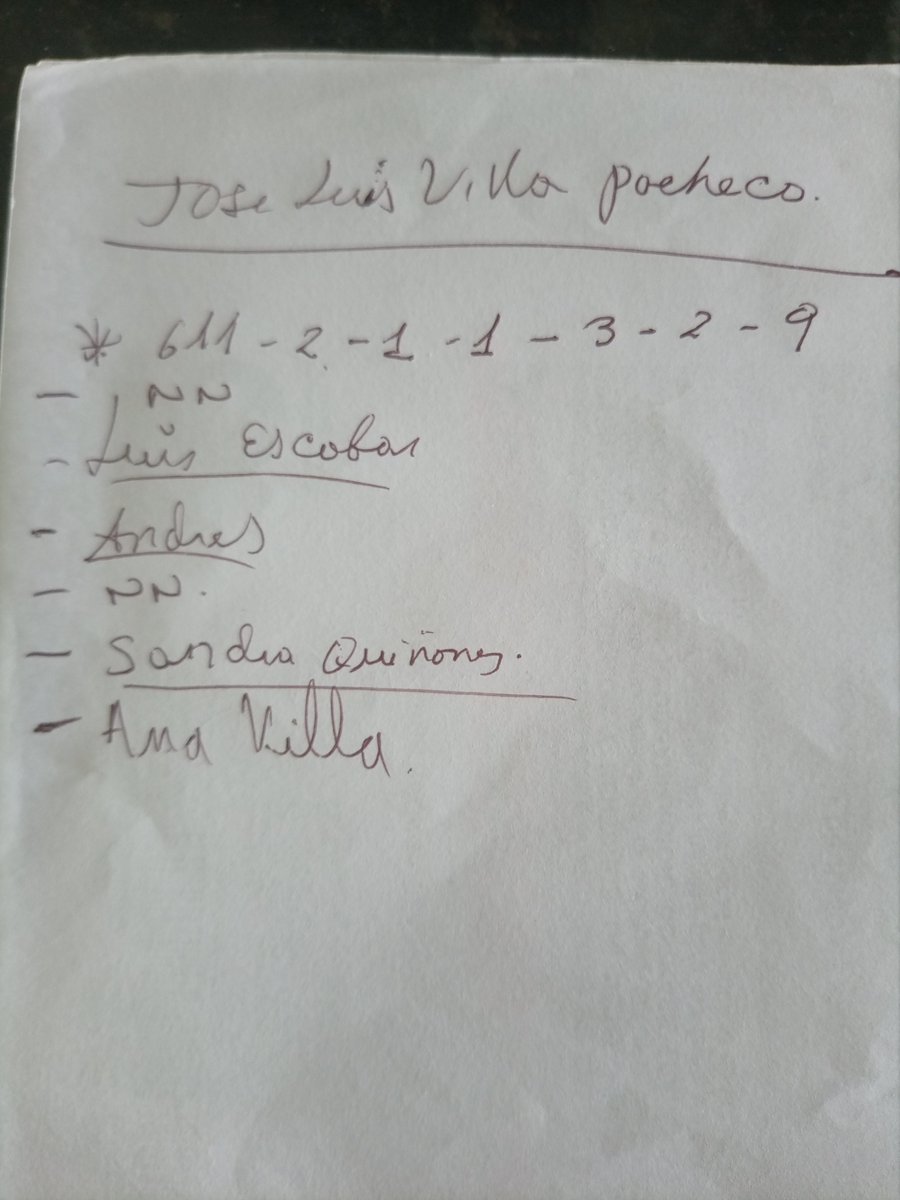 Jose Luis Villa pacheco.
* 611 - 2 - 1 - 1 - 3 - 2 - 9
- NN
- Luis Escobar
- Andres
- NN.
- Sandra Quiñones.
- Ana Villa.